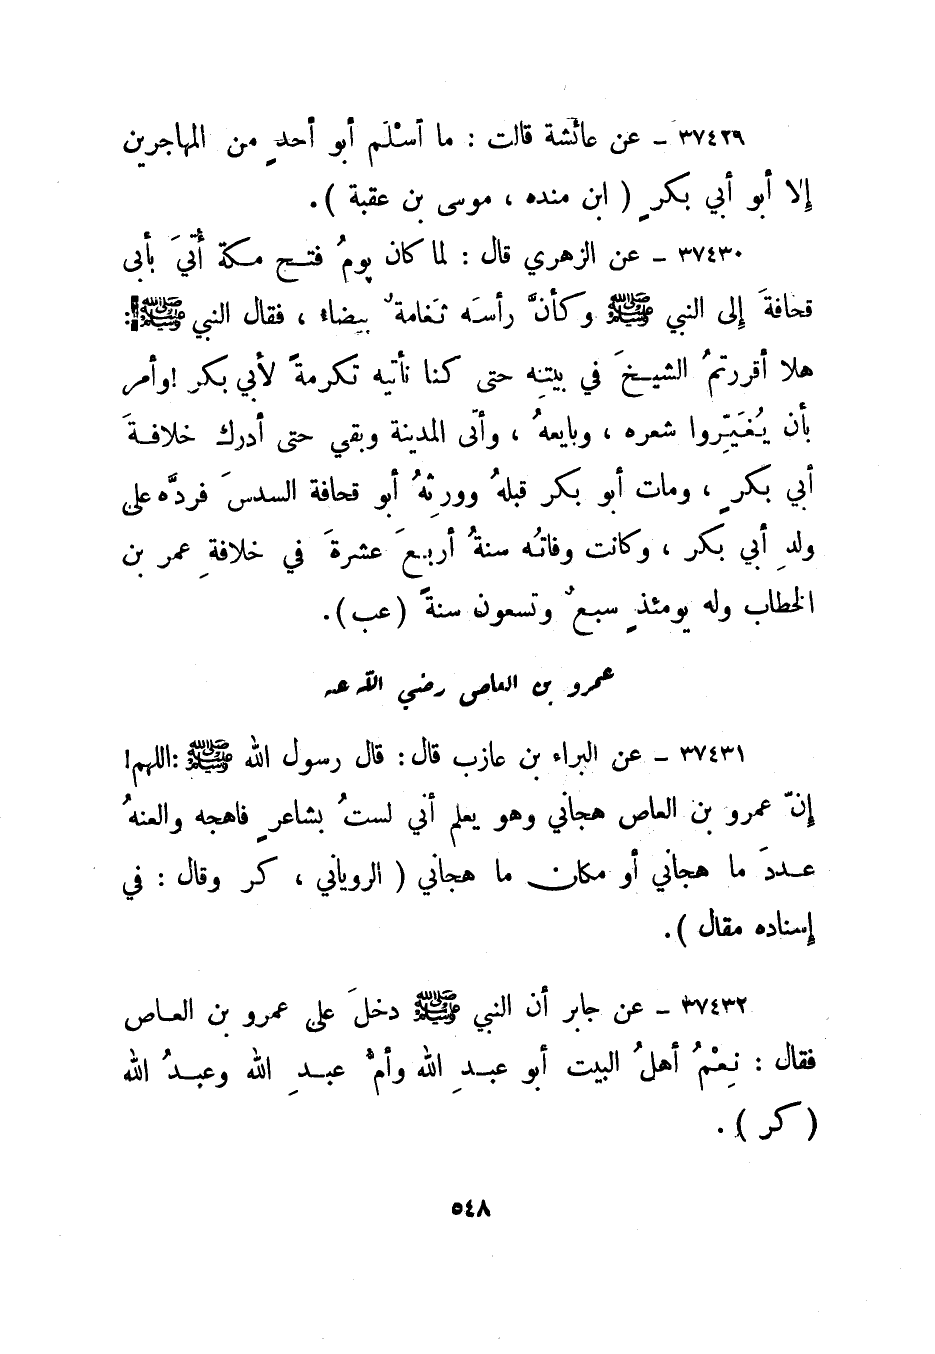 ٣٧٤٢٩ ـ عن عائشة قالت : ما أسْلَم أبو أحدٍ من المهاجرين
إلا أبو أبي بكرٍ ( ابن منده ، موسى بن عقبة ) .
٣٧٤٣٠ ـ عن الزهري قال : لما كان يومُ فتح مكة أُتيَ بأبى
قحافةَ إلى النبي ﷺ وكأنَّ رأسَه ثغامةٌ بيضاء ، فقال النبي ﷺ:
هلا أقررتمُ الشيخَ في بيتِه حتى كنا نأتيه تكرمةً لأبي بكر ! وأمر
بأن يُغَيّرِوا شعره ، وبايعهُ ، وأتى المدينة وبقي حتى أدرك خلافةَ
أبي بكرٍ ، ومات أبو بكر قبلهُ وورِثهُ أبو قحافة السدسَ فردَّه على
ولدِ أبي بكر ، وكانت وفاتُه سنةُ أربعَ عشرةَ في خلافةِ عمر بن
الخطاب وله يومئذٍ سبعٌ وتسعون سنةً ( عب ) .
عمرو بن العاص رضي الله عنه
٣٧٤٣١ ـ عن البراء بن عازب قال : قال رسول الله ﷺ : اللهم !
إنّ عمرو بن العاص هجاني وهو يعلم أني لستُ بشاعرٍ فاهجه والعنهُ
عددَ ما هجاني أو مكان ما هجاني ( الروياني ، كر وقال : في
إسناده مقال ) .
٣٧٤٣٢ ـ عن جابر أن النبي ﷺ دخلَ على عمرو بن العاص
فقال : نِعْمُ أهلُ البيت أبو عبدِ الله وأمُّ عبدِ الله وعبدُ الله
( كر ) .
٥٤٨